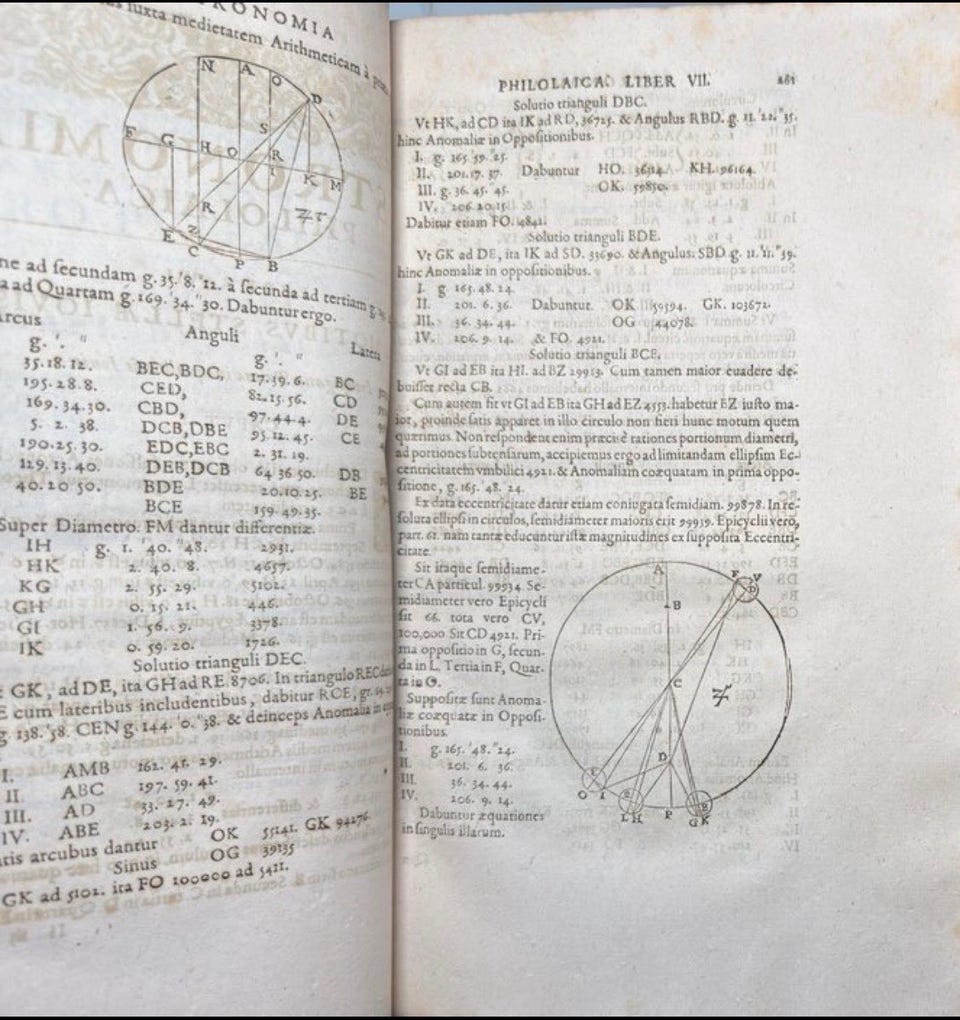 RONOMIA
iuxta medietatem Arithmeticam à
N A O D
F G H O S R I K M
R Z
E C P B
ne ad secundam g. 35. '8. "12. à secunda ad tertiam g.
a ad Quartam g. 169. '34. "30. Dabuntur ergo.
Arcus Anguli Latera
g. '. " g. '. "
35. 18. 12. BEC,BDC, 17. 39. 6. BC
195. 28. 8. CED, 82. 15. 56. CD
169. 34. 30. CBD, 97. 44. 4. DE
5. 2. 38. DCB,DBE 95. 12. 45. CE
190. 25. 30. EDC,EBC 2. 31. 19.
129. 13. 40. DEB,DCB 64. 36. 50. DB
40. 20 50. BDE 20. 10. 25. BE
BCE 159. 49. 35.
Super Diametro. FM dantur differentiæ.
IH g. 1. '40. "48. 2931.
HK 2. 40. 8. 4657.
KG 2. 55. 29. 5102.
GH 0. 15. 21. 446.
GI 1. 56. 9. 3378.
IK 0. 59. 20. 1726.
Solutio trianguli DEC.
GK, ad DE, ita GH ad RE 8706. In triangulo REC
E cum lateribus includentibus, dabitur RCE, gr.
g. 138. '58. CEN g. 144. '0. "38. & deinceps Anomalia in
I. AMB 162. 41. 29.
II. ABC 197. 59. 41.
III. AD 33. 27. 49.
IV. ABE 203. 2. 19.
tis arcubus dantur OK 55141. GK 94276.
Sinus OG 39135
GK ad 5102. ita FO 100000 ad 5411.
PHILOLAICA. LIBER VII. 281
Solutio trianguli DBC.
Vt HK, ad CD ita IK ad RD, 36725. & Angulus RBD. g. 11. '22. "35.
hinc Anomaliæ in Oppositionibus.
I. g. 165. '59. "25.
II. 201. 17. 37. Dabuntur HO. 36314. KH. 96164.
III. g. 36. 45. "45. OK. 59850.
IV. 206. 20. 15.
Dabitur etiam FO. 4841.
Solutio trianguli BDE.
Vt GK ad DE, ita IK ad SD. 33690. & Angulus. SBD g. 11. '11. "39.
hinc Anomaliæ in oppositionibus.
I. g. 165. 48. 24.
II. 201. 6. 36. Dabuntur. OK 59594. GK. 103672.
III. 36. 34. 44. OG 44078.
IV. 206. 9. 14. & FO. 4921.
Solutio trianguli BCE,
Vt GI ad EB ita HI. ad BZ 29913. Cum tamen maior euadere de-
buisset recta CB.
Cum autem sit vt GI ad EB ita GH ad EZ 4553. habetur EZ iusto ma-
ior, proinde satis apparet in illo circulo non fieri hunc motum quem
quærimus. Non respondent enim præcisè rationes portionum diametri,
ad portiones subtensarum, accipiemus ergo ad limitandam ellipsim Ec-
centricitatem vmbilici 4921. & Anomaliam coæquatam in prima oppo-
sitione, g. 165. '48. "24.
Ex data eccentricitate datur etiam coniugata semidiam. 99878. In re-
soluta ellipsi in circulos, semidiameter maioris erit 99939. Epicyclii vero,
part. 61. nam tantæ educuntur istæ magnitudines ex supposita Eccentri-
citate.
Sit itaque semidiame-
ter CA particul. 99934. Se-
midiameter vero Epicycli
sit 66. tota vero CV,
100,000 Sit CD 4921. Pri-
ma oppositio in G, secun-
da in L. Tertia in F, Quar-
ta in O.
Suppositæ sunt Anoma-
liæ coæquatæ in Opposi-
tionibus.
I. g. 165. '48. "24.
II. 201. 6. 36.
III. 36. 34. 44.
IV. 206. 9. 14.
Dabuntur æquationes
in singulis illarum.
A F V
B
C
D
O I L H P G K